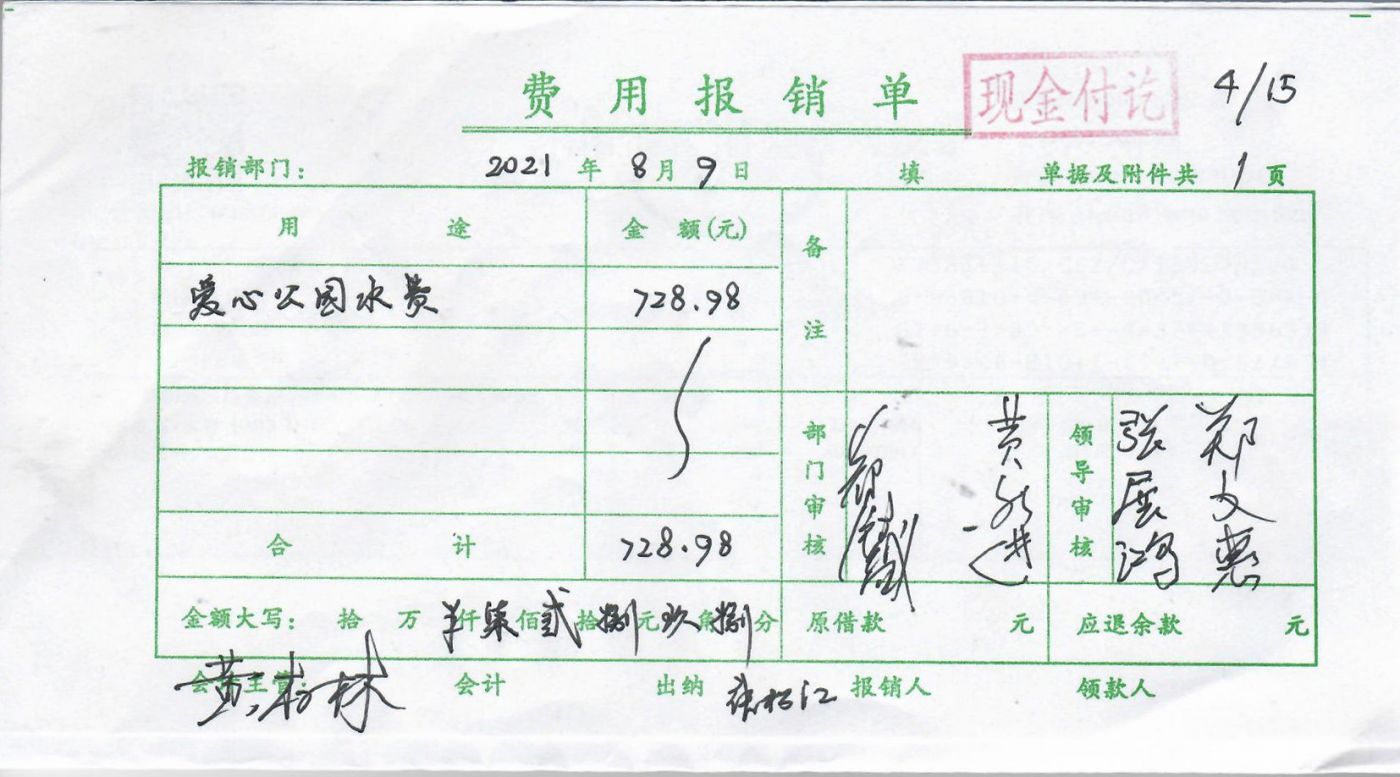 费用报销单 现金付讫 4/15
报销部门： 2021 年 8 月 9 日 填 单据及附件共 1 页
用途 金额(元) 备注
爱心公园水费 728.98
部门审核 黄 进 领导审核 张展鸿 郑文惠
合计 728.98
金额大写： 拾 万 仟 柒 佰 贰 拾 捌 元 玖 角 捌 分 原借款 元 应退余款 元
会计主管： 黄 林 会计 出纳 报销人 领款人